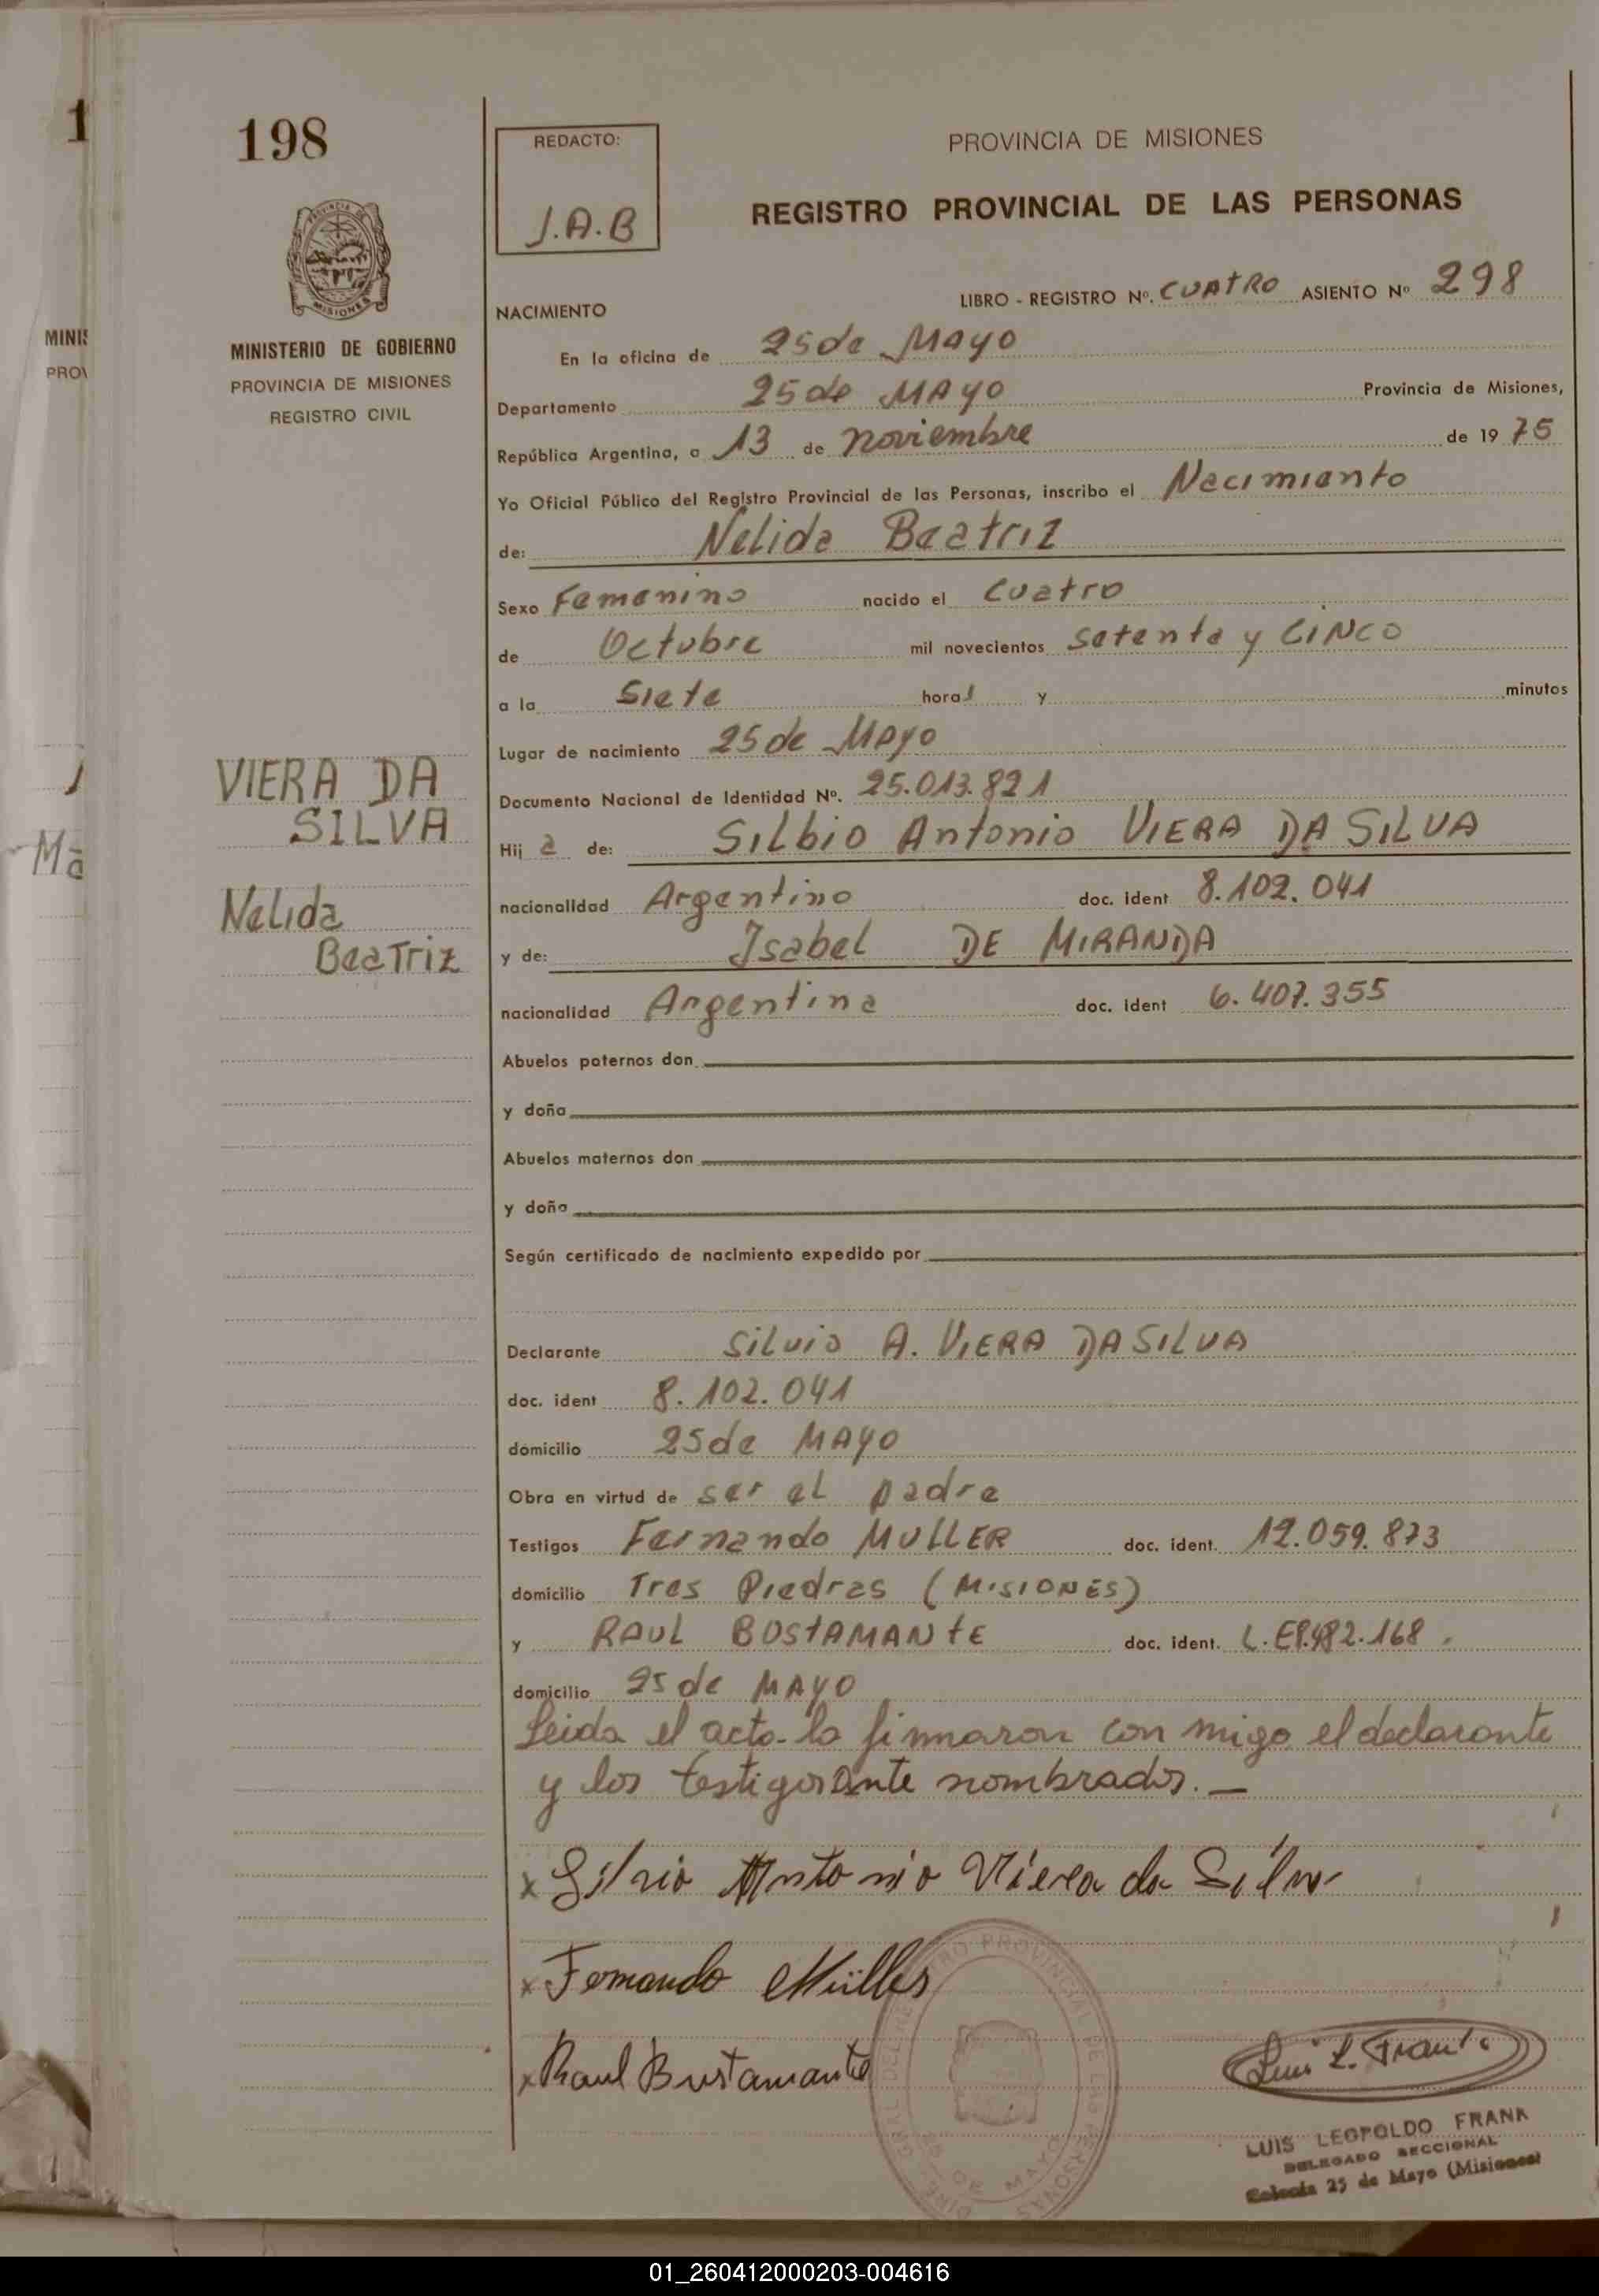 1
198
REDACTO:
J.A.B
PROVINCIA DE MISIONES
REGISTRO PROVINCIAL DE LAS PERSONAS
PROVINCIA DE
MISIONES
MINISTERIO DE GOBIERNO
PROVINCIA DE MISIONES
REGISTRO CIVIL
MINIS
PROV
NACIMIENTO
LIBRO - REGISTRO Nº. CUATRO ASIENTO Nº 298
En la oficina de 25 de Mayo
Departamento 25 de MAYO Provincia de Misiones,
República Argentina, a 13 de noviembre de 19 75
Yo Oficial Público del Registro Provincial de las Personas, inscribo el Nacimianto
de: Nelida Beatriz
Sexo Femenino nacido el Cuatro
de Octubre mil novecientos Setenta y CINCO
a la Siete horas y minutos
Lugar de nacimiento 25 de Mayo
Documento Nacional de Identidad Nº. 25.013.821
VIERA DA
SILVA
Hij a de: SILbio Antonio VIERA DA SILVA
Ma
nacionalidad Argentino doc. ident 8.102.041
Nelida
Beatriz
y de: Isabel DE MIRANDA
nacionalidad Argentina doc. ident 6.407.355
Abuelos paternos don
y doña
Abuelos maternos don
y doña
Según certificado de nacimiento expedido por
Declarante Silvio A. VIERA DA SILVA
doc. ident 8.102.041
domicilio 25 de MAYO
Obra en virtud de ser el padre
Testigos Fernando MULLER doc. ident. 12.059.873
domicilio Tres Piedras (MISIONES)
y RAUL BUSTAMANTE doc. ident. L.E 482.168.
domicilio 25 de MAYO
Leida el acta la firmaron con migo el declarante
y los testigos ante nombrados. —
x Silvio Antonio Viera da Silva
x Fernando Müller
x Raul Bustamante
Luis L. Frank
REGISTRO PROVINCIAL DE LAS PERSONAS
25 DE MAYO
LUIS LEOPOLDO FRANK
DELEGADO SECCIONAL
Colonia 25 de Mayo (Misiones)
01_260412000203-004616